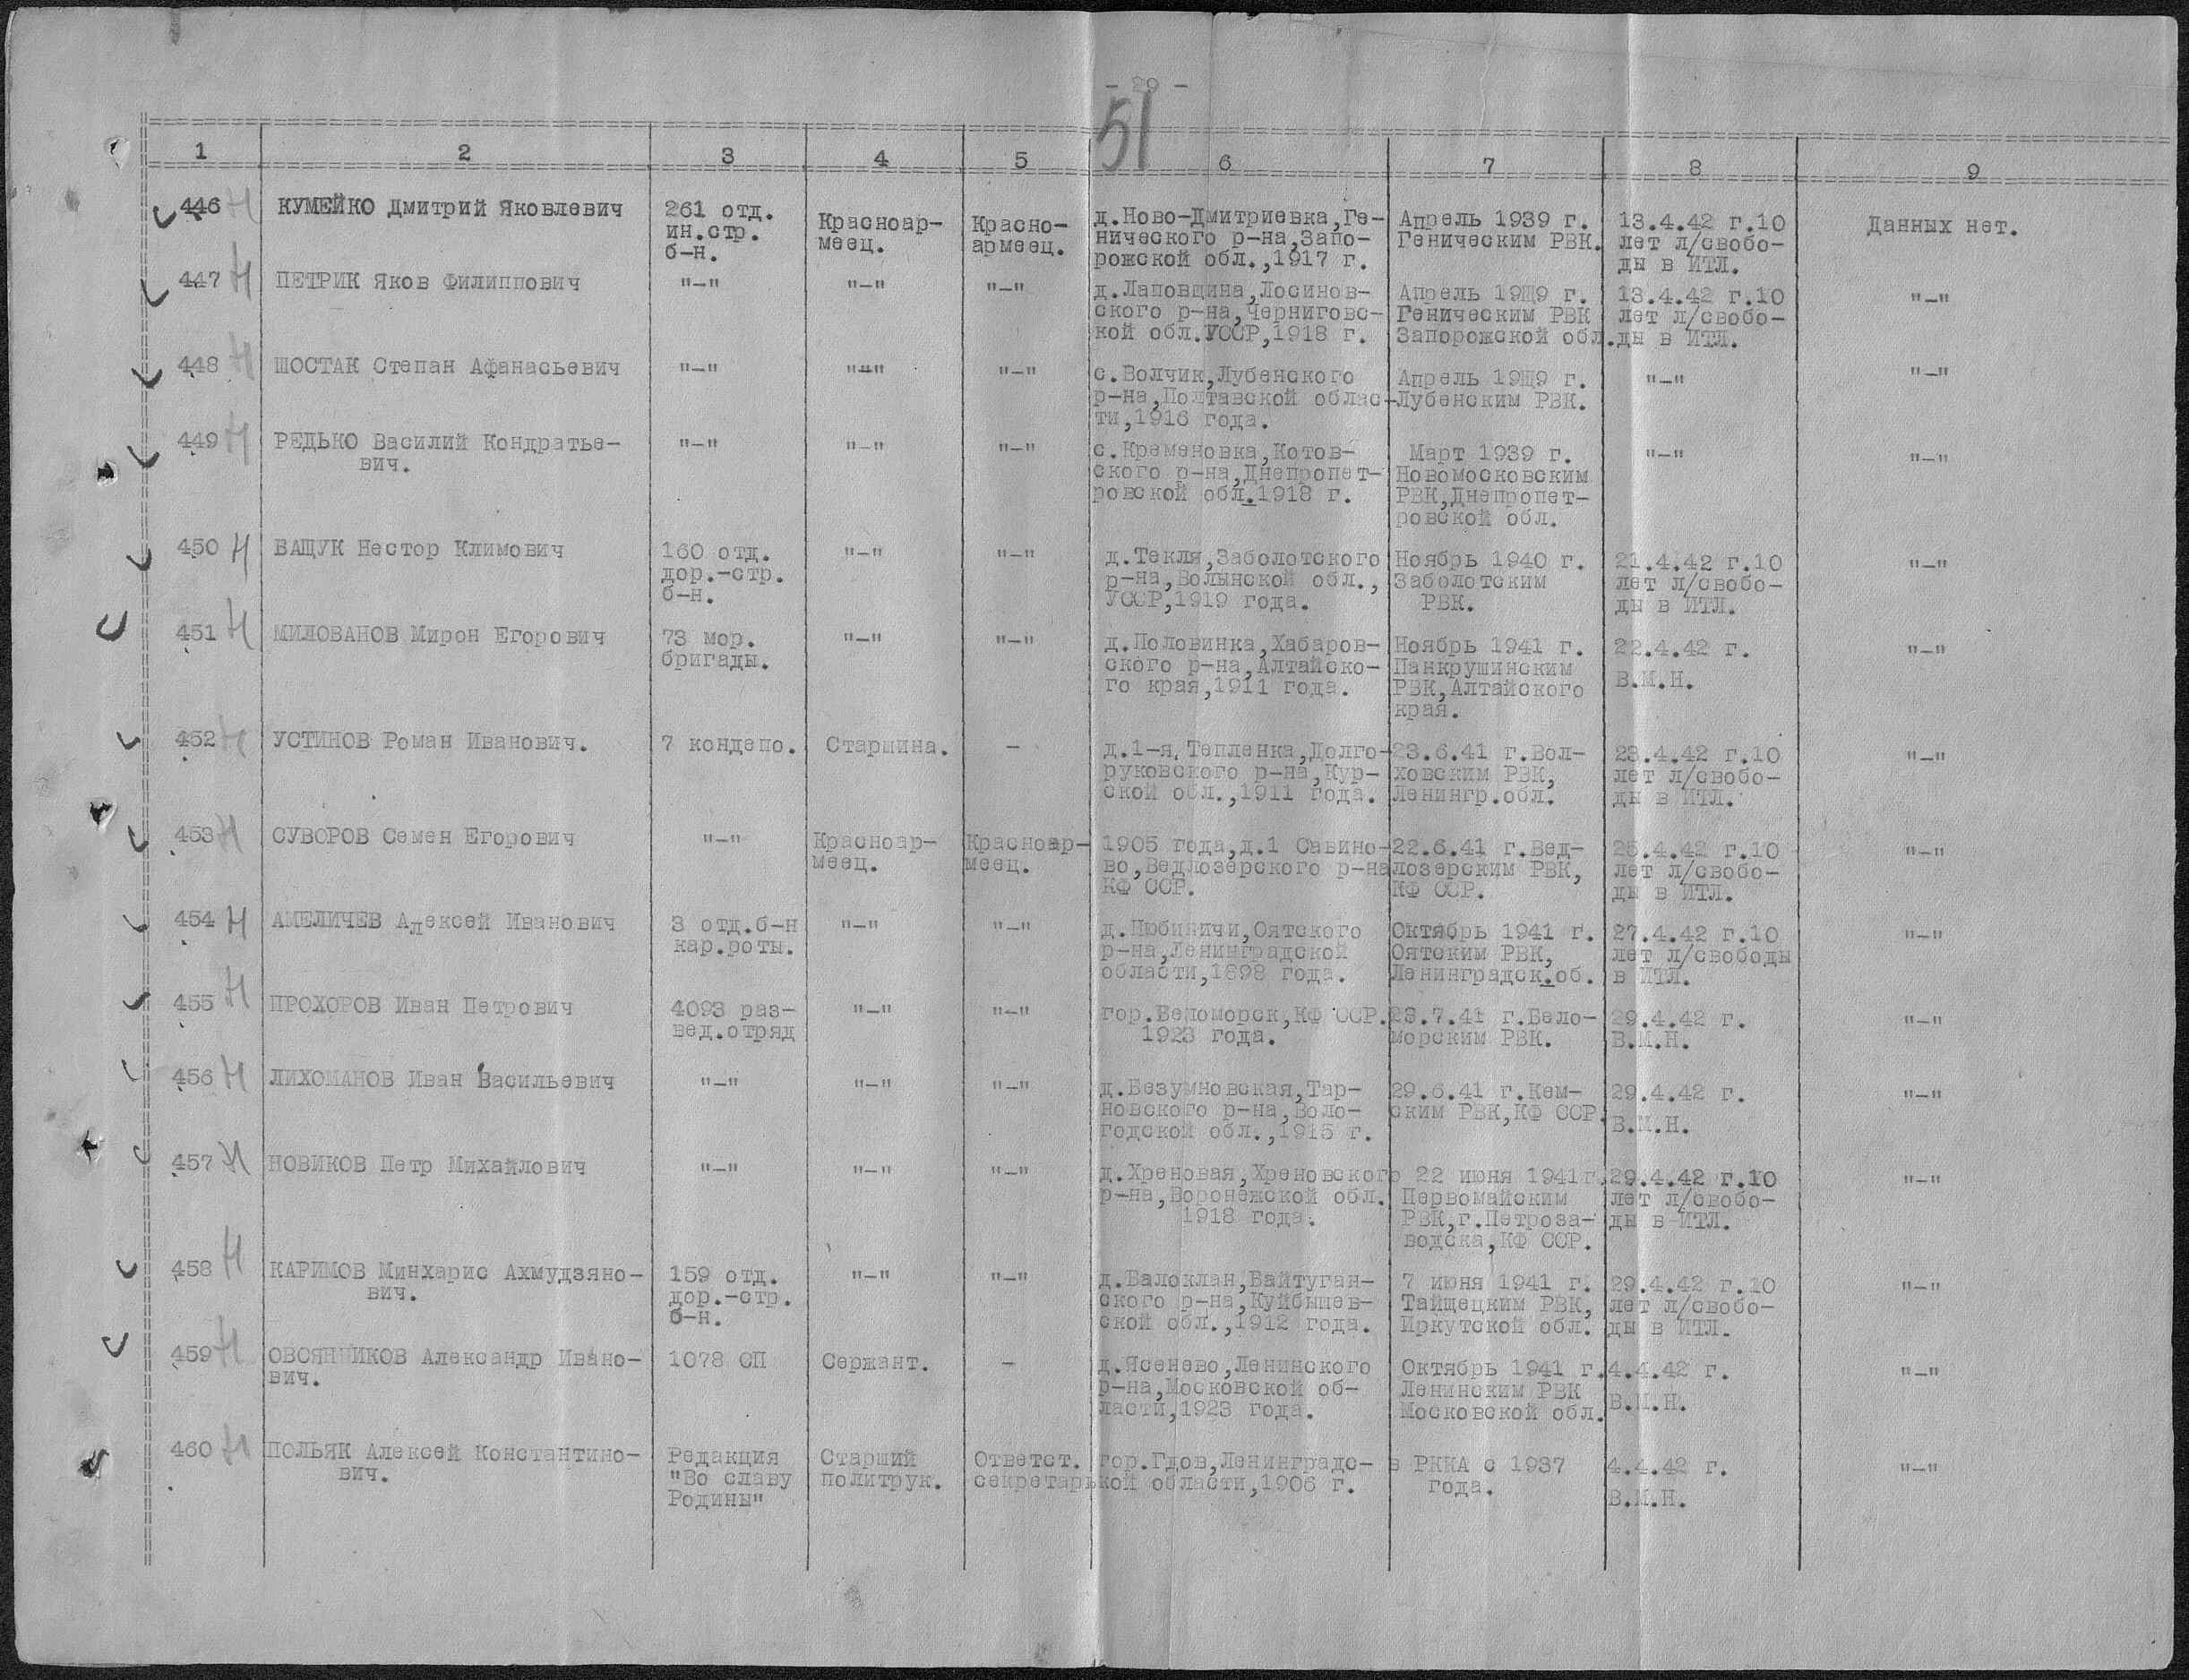 - 29 -
51
1 2 3 4 5 6 7 8 9
446 Н КУМЕЙКО Дмитрий Яковлевич
261 отд.
ин.стр.
б-н.
Красноар-
меец.
Красно-
армеец.
д.Ново-Дмитриевка,Ге-
нического р-на,Запо-
рожской обл.,1917 г.
Апрель 1939 г.
Геническим РВК.
13.4.42 г.10
лет л/свобо-
ды в ИТЛ.
Данных нет.
447 Н ПЕТРИК Яков Филиппович
"-"
"-"
"-"
д.Лаповщина,Лосинов-
ского р-на,Черниговс-
кой обл.УССР,1918 г.
Апрель 19Щ9 г.
Геническим РВК
Запорожской обл.
13.4.42 г.10
лет л/свобо-
ды в ИТЛ.
"-"
448 Н ШОСТАК Степан Афанасьевич
"-"
"-"
"-"
с.Волчик,Лубенского
р-на,Полтавской облас-
ти,1916 года.
Апрель 19Щ9 г.
Лубенским РВК.
"-"
"-"
449 Н РЕДЬКО Василий Кондратье-
вич.
"-"
"-"
"-"
с.Кременовка,Котов-
ского р-на,Днепропет-
ровской обл.1918 г.
Март 1939 г.
Новомосковским
РВК,Днепропет-
ровской обл.
"-"
"-"
450 Н ВАЩУК Нестор Климович
160 отд.
дор.-стр.
б-н.
"-"
"-"
д.Текля,Заболотского
р-на,Волынской обл.,
УССР,1919 года.
Ноябрь 1940 г.
Заболотским
РВК.
21.4.42 г.10
лет л/свобо-
ды в ИТЛ.
"-"
451 Н МИЛОВАНОВ Мирон Егорович
73 мор.
бригады.
"-"
"-"
д.Половинка,Хабаров-
ского р-на,Алтайско-
го края,1911 года.
Ноябрь 1941 г.
Панкрушинским
РВК,Алтайского
края.
22.4.42 г.
В.М.Н.
"-"
452 Н УСТИНОВ Роман Иванович.
7 кондепо.
Старшина.
-
д.1-я Тепленка,Долго-
руковского р-на,Кур-
ской обл.,1911 года.
23.6.41 г.Вол-
ховским РВК,
Ленингр.обл.
23.4.42 г.10
лет л/свобо-
ды в ИТЛ.
"-"
453 Н СУВОРОВ Семен Егорович
"-"
Красноар-
меец.
Красноар-
меец.
1905 года,д.1 Савино-
во,Ведлозерского р-на
КФ ССР.
22.6.41 г.Вед-
лозерским РВК,
КФ ССР.
25.4.42 г.10
лет л/свобо-
ды в ИТЛ.
"-"
454 Н АМЕЛИЧЕВ Алексей Иванович
3 отд.б-н
кар.роты.
"-"
"-"
д.Любиничи,Оятского
р-на,Ленинградской
области,1898 года.
Октябрь 1941 г.
Оятским РВК,
Ленинградск.об.
27.4.42 г.10
лет л/свободы
в ИТЛ.
"-"
455 Н ПРОХОРОВ Иван Петрович
4093 раз-
вед.отряд
"-"
"-"
гор.Беломорск,КФ ССР.
1923 года.
23.7.41 г.Бело-
морским РВК.
29.4.42 г.
В.М.Н.
"-"
456 Н ЛИХОМАНОВ Иван Васильевич
"-"
"-"
"-"
д.Безумновская,Тар-
новского р-на,Воло-
годской обл.,1915 г.
29.6.41 г.Кем-
ским РВК,КФ ССР.
29.4.42 г.
В.М.Н.
"-"
457 Н НОВИКОВ Петр Михайлович
"-"
"-"
"-"
д.Хреновая,Хреновского
р-на,Воронежской обл.
1918 года.
22 июня 1941г.
Первомайским
РВК,г.Петроза-
водска,КФ ССР.
29.4.42 г.10
лет л/свобо-
ды в ИТЛ.
"-"
458 Н КАРИМОВ Минхарис Ахмудзяно-
вич.
159 отд.
дор.-стр.
б-н.
"-"
"-"
д.Балоклан,Байтуган-
ского р-на,Куйбышев-
ской обл.,1912 года.
7 июня 1941 г.
Тайшецким РВК,
Иркутской обл.
29.4.42 г.10
лет л/свобо-
ды в ИТЛ.
"-"
459 Н ОВСЯННИКОВ Александр Ивано-
вич.
1078 СП
Сержант.
-
д.Ясенево,Ленинского
р-на,Московской об-
ласти,1923 года.
Октябрь 1941 г.
Ленинским РВК
Московской обл.
4.4.42 г.
В.М.Н.
"-"
460 Н ПОЛЬЯК Алексей Константино-
вич.
Редакция
"Во славу
Родины"
Старший
политрук.
Ответст.
секретарь
гор.Гдов,Ленинградс-
кой области,1906 г.
в РККА с 1937
года.
4.4.42 г.
В.М.Н.
"-"